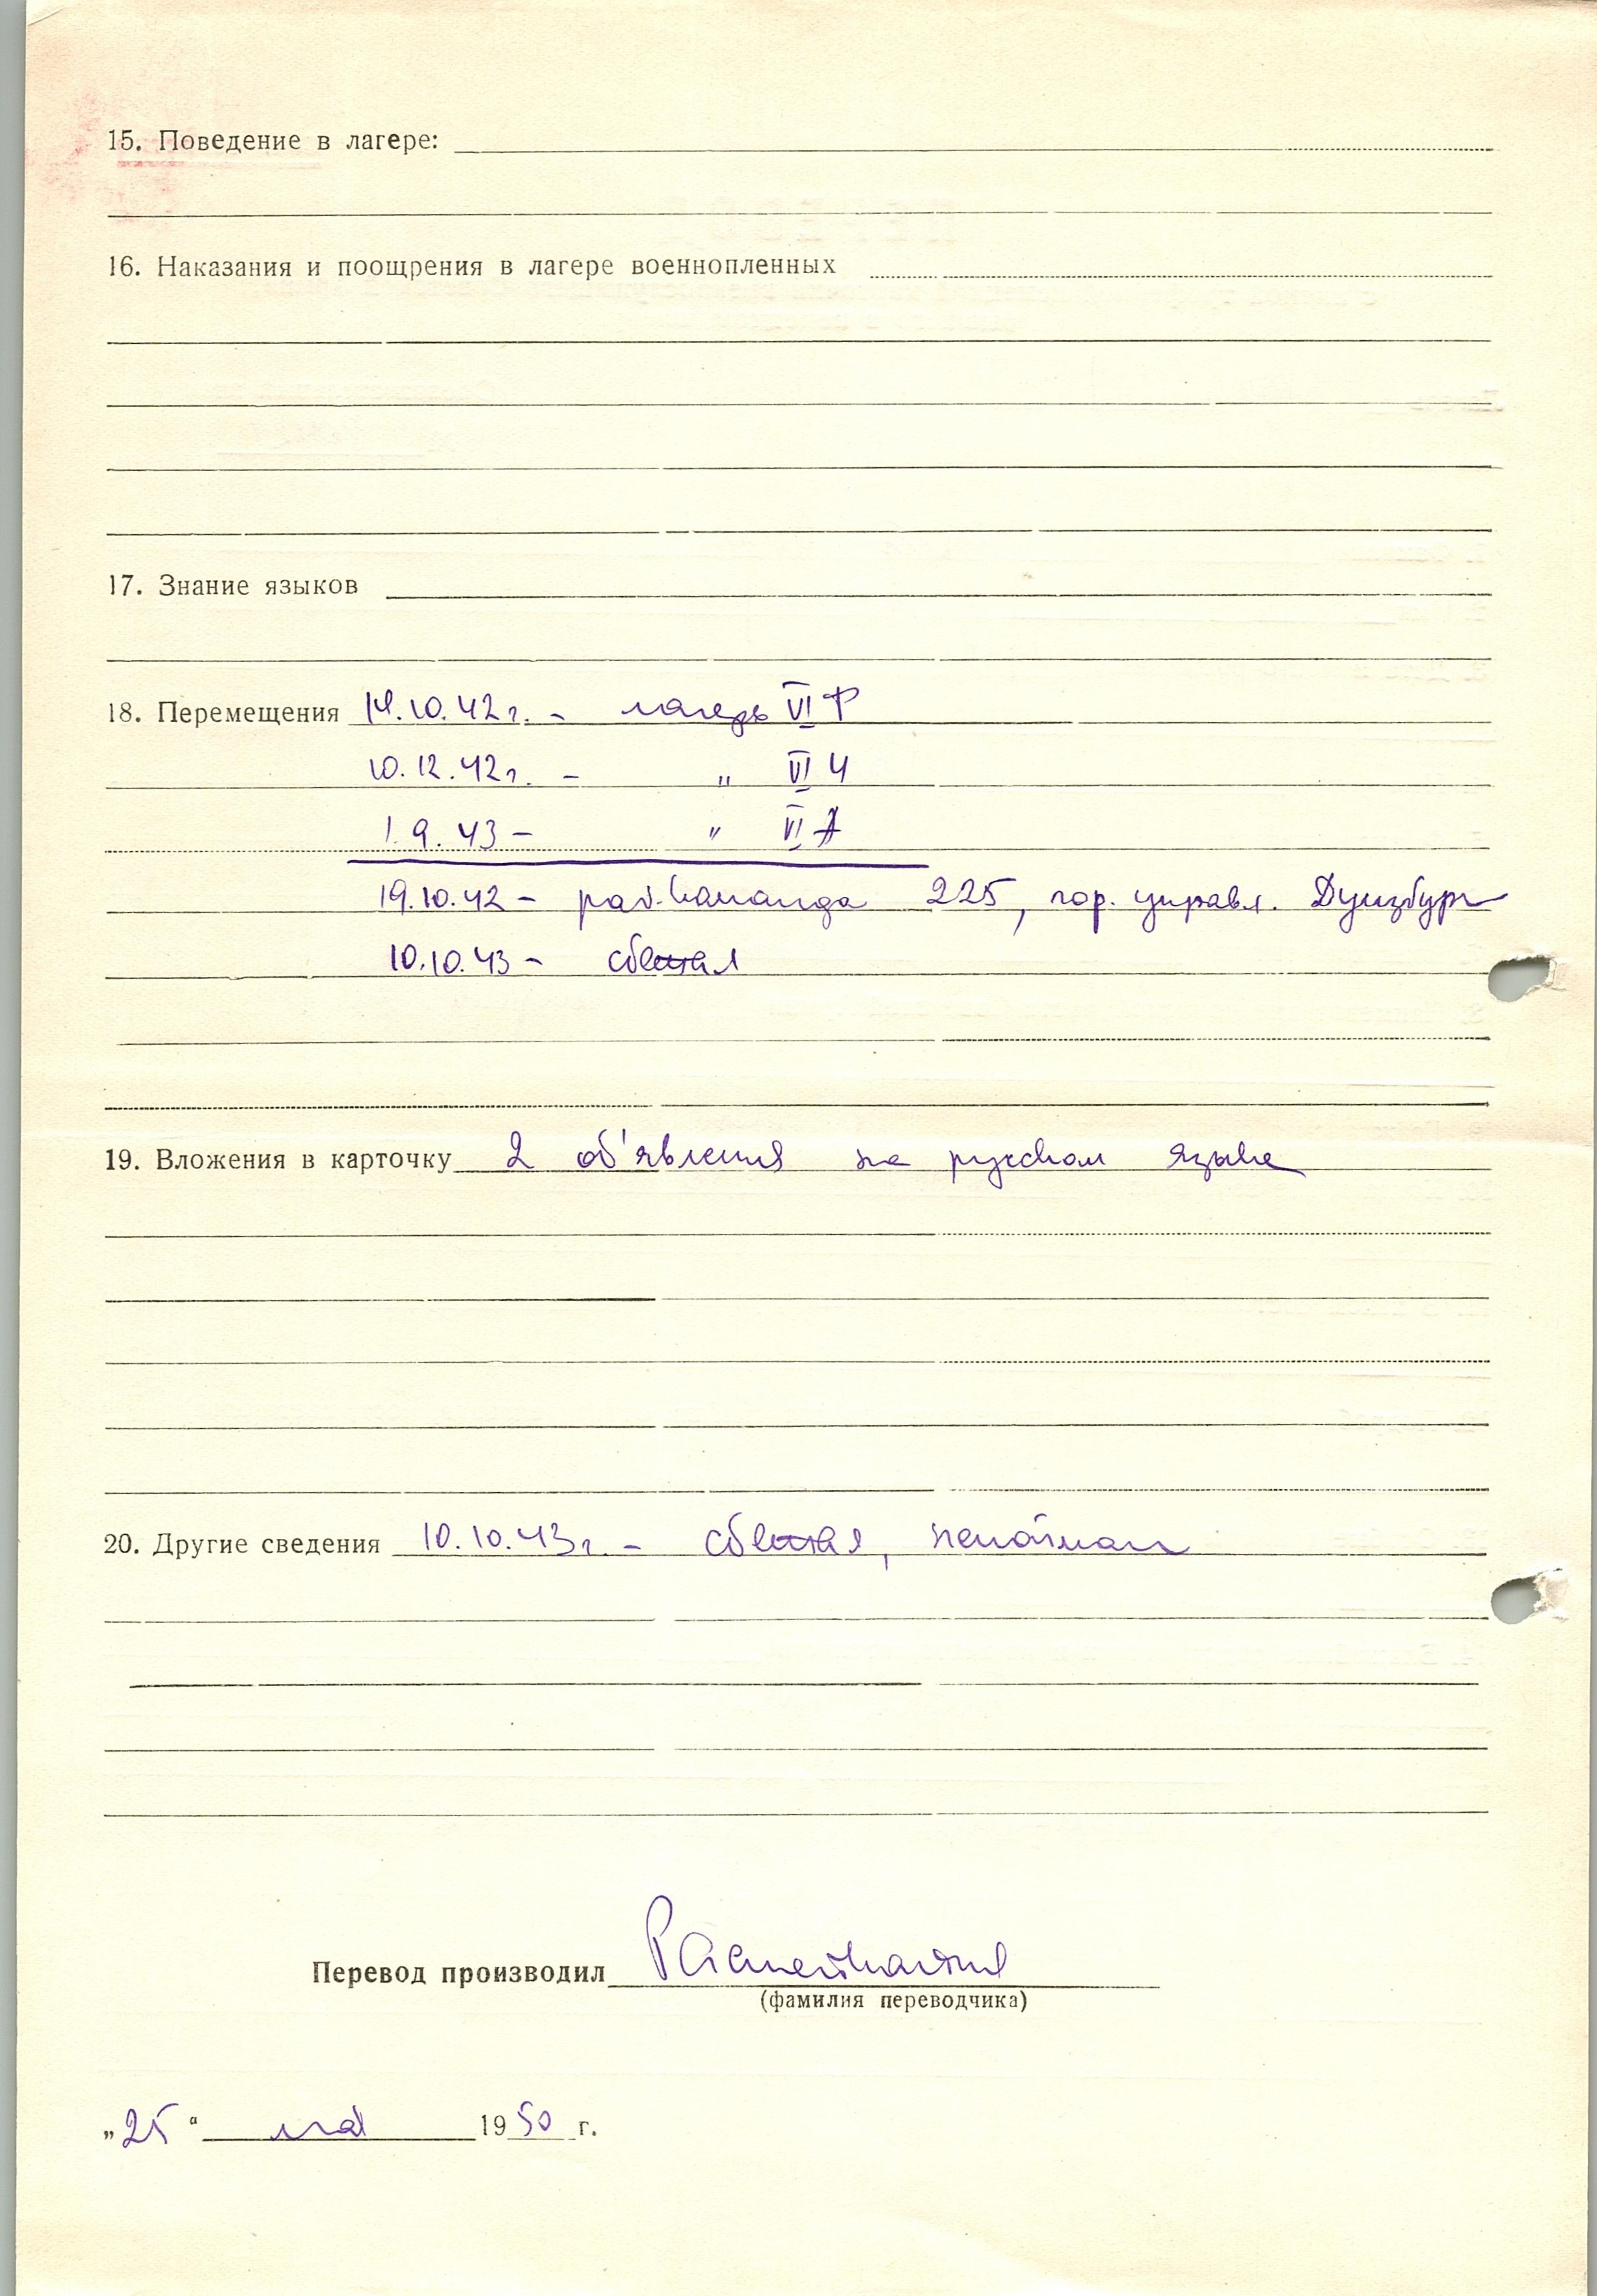 15. Поведение в лагере:
16. Наказания и поощрения в лагере военнопленных
17. Знание языков
18. Перемещения 14.10.42 г. – лагерь VI Ф
10.12.42 г. – " VI Ч
1.9.43 – " VI А
19.10.42 – раб. команда 225, гор. управл. Дуизбург
10.10.43 – сбежал
19. Вложения в карточку 2 об'явления на русском языке
20. Другие сведения 10.10.43 г. – сбежал, непойман
Перевод производил
(фамилия переводчика)
„25“ мая 1950 г.